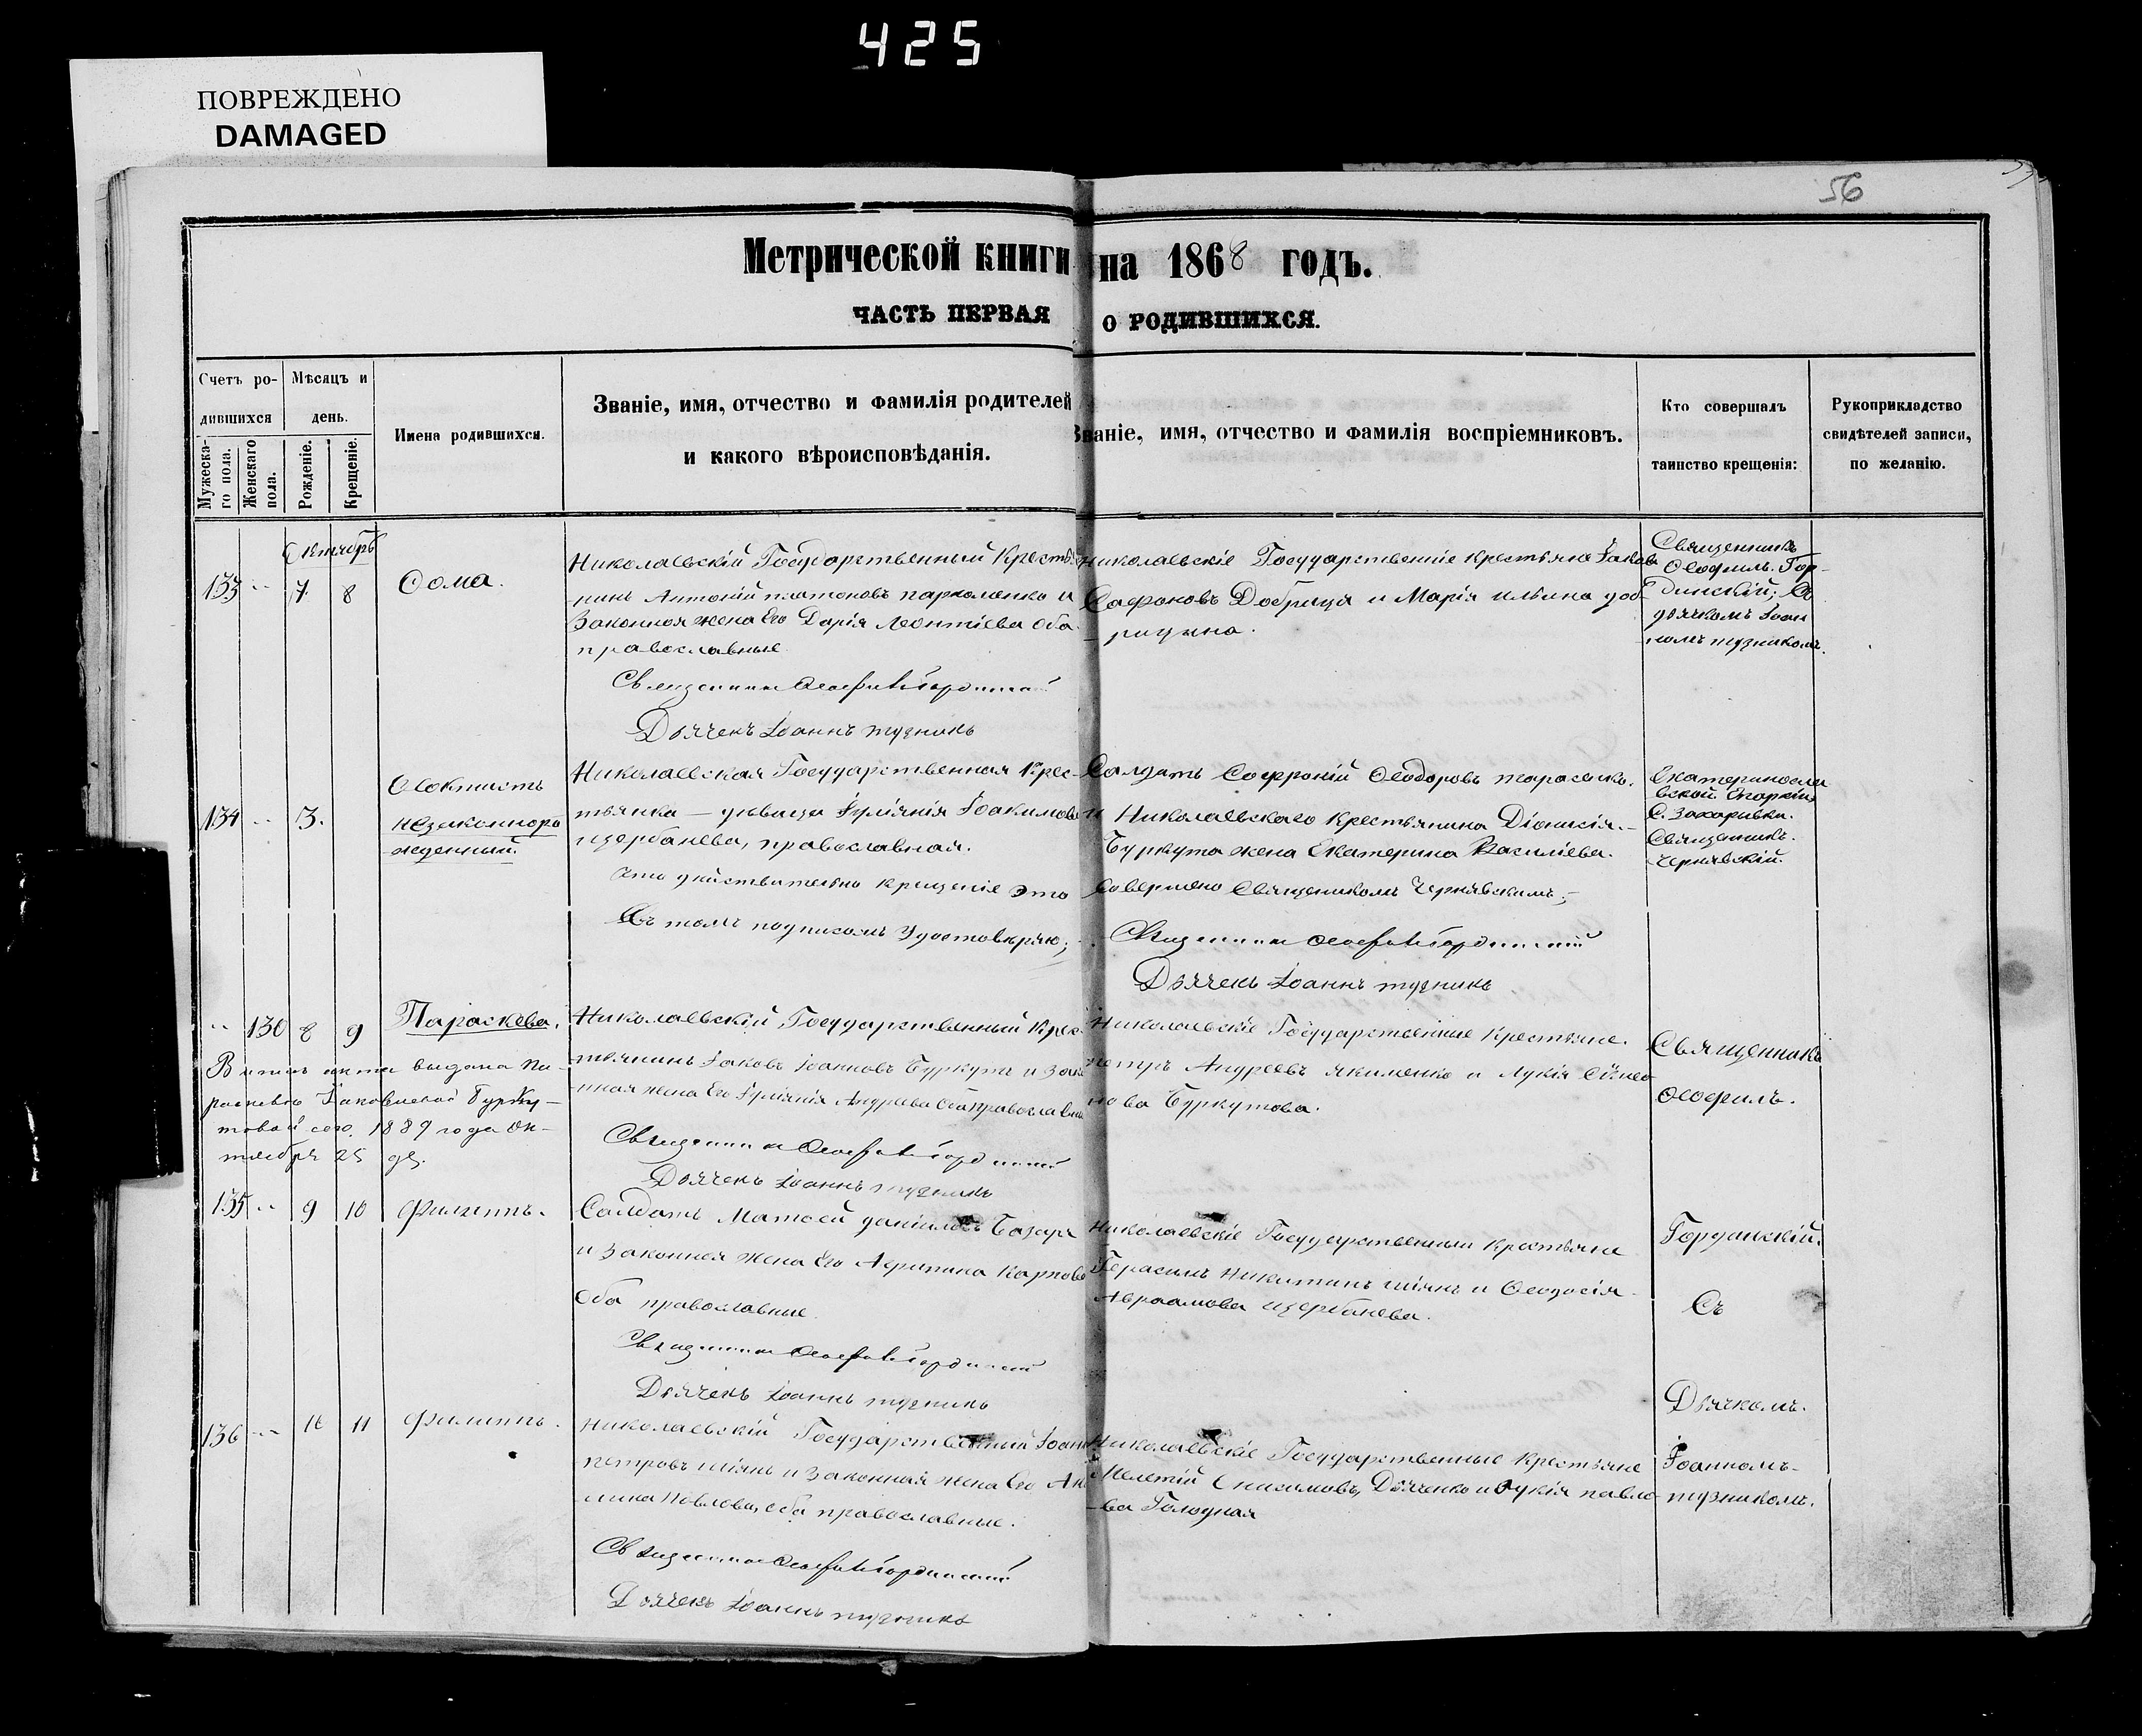 425
ПОВРЕЖДЕНО
DAMAGED
56
Метрической книги на 1868 годъ.
ЧАСТЬ ПЕРВАЯ О РОДИВШИХСЯ.
Счетъ ро-
дившихся
Мужеска-
го пола.
Женскаго
пола.
Мѣсяцъ и
день.
Рожденіе.
Крещеніе.
Имена родившихся.
Званіе, имя, отчество и фамилія родителей
и какого вѣроисповѣданія.
Званіе, имя, отчество и фамилія воспріемниковъ.
Кто совершалъ
таинство крещенія:
Рукоприкладство
свидѣтелей записи,
по желанію.
Октябрь
133 7. 8 Ѳома.
Николаевскій Государственный Кресть
-нинъ Антоній платоновъ пархоменко и
Законноя жена Его Дарія Леонтіева оба
православные
Священникъ Ѳеофилъ Гординскій
Дьячекъ Іоаннъ тузникъ
Николаевскіе Государственніе крестьяне Іаковъ
Сафоновъ Добрица и Марія ильина доб
-рицына.
Священникъ
Ѳеофилъ Гор-
динскій; Съ
дьячкомъ Іоан
-номъ тузникомъ.
134 3. Ѳеоктистъ
незаконноро
жденный.
Николаевская Государственная Крес-
тьянка — дѣвица Іуліянія Іоакимова
щербанева, православная.
Что дѣйствительно крещеніе это
Въ томъ подписомъ Удостовѣряю;
Солдатъ Софроній Ѳеодоровъ тарасенко.
и Николаевскаго Крестьянина Діонисія.-
Буркута жена Екатерина Василіева.
Совершено Священикомъ Чернявскимъ;
Священникъ Ѳеофилъ Гординскій
Дьячекъ Іоаннъ тузникъ
Екатериносла
вской Епархіи,
С. Захаривки.
Священникъ.
Чернявскій.
130 8 9 Параскева.
выдана Па-
раскевіи Іаковлевой Бурку-
товой сего 1889 года Ок-
тября 25 дг.
Николаевскій Государственный Крес
тьянинъ Іаковъ Іоанновъ Буркутъ и Зако
-нная жена Его Іуліянія Андреева Оба православны
Священникъ Ѳеофилъ Гординскій
Дьячекъ Іоаннъ тузникъ
Николаевскіе Государственные Крестьяне.
петръ Андреевъ якименко и Лукія Симео
нова Буркутова.
Священникъ
Ѳеофилъ.
135 9 10 Филиппъ.
Солдатъ Матѳей даніиловъ
и Законноя жена Его Агрипина Карпова
Оба православные.
Священникъ Ѳеофилъ Гординскій
Дьячекъ Іоаннъ тузникъ
Николаевскіе Государственныи Крестьяне
Герасимъ Никитинъ шіянъ и Ѳеодосія
Авраамова щербанева.
Гординскій.
Съ
136 10 11 Филиппъ.
Николаевскій Государственный Іоанн
петровъ шіянъ и Законная жена Его Ак
-лина Повлова, оба православные.
Священникъ Ѳеофилъ Гординскій
Дьячекъ Іоаннъ тузникъ
Николаевскіе Государственные Крестьяне
Мелетій Онисимовъ, Дьяченко и Лукія павло-
-ва Голодная
Дьячкомъ.
Іоанномъ-
тузникомъ.